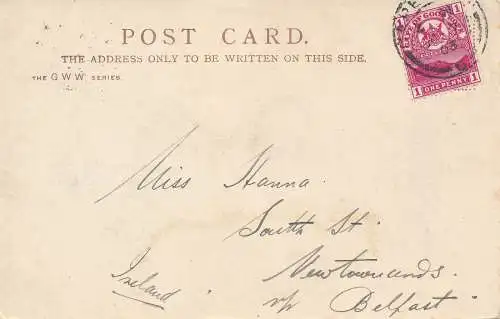 POST CARD.
THE ADDRESS ONLY TO BE WRITTEN ON THIS SIDE.
THE G.W.W. SERIES.
1 1
OF GOOD
1 ONE PENNY 1
03
Miss Hanna.
South St.
Newtownards.
Ireland
Belfast.